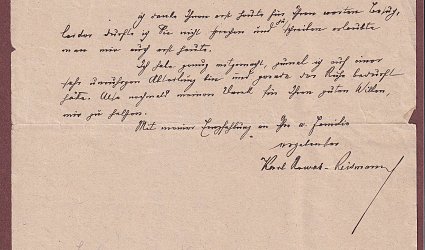 ich danke Ihnen erst heute für Ihren werten Besuch,
leider durfte ich Sie nicht sprechen und zu schreiben erlaubte
man mir auch erst heute.
Ich habe genug mitgemacht, zumal ich auch immer
sehr unruhigen bin und gerade der Ruhe bedurft
hätte. Also nochmals meinen Dank für Ihren guten Willen,
mir zu helfen.
Mit meiner Empfehlung an Sie u. Familie
ergebenster
Karl - Reismann